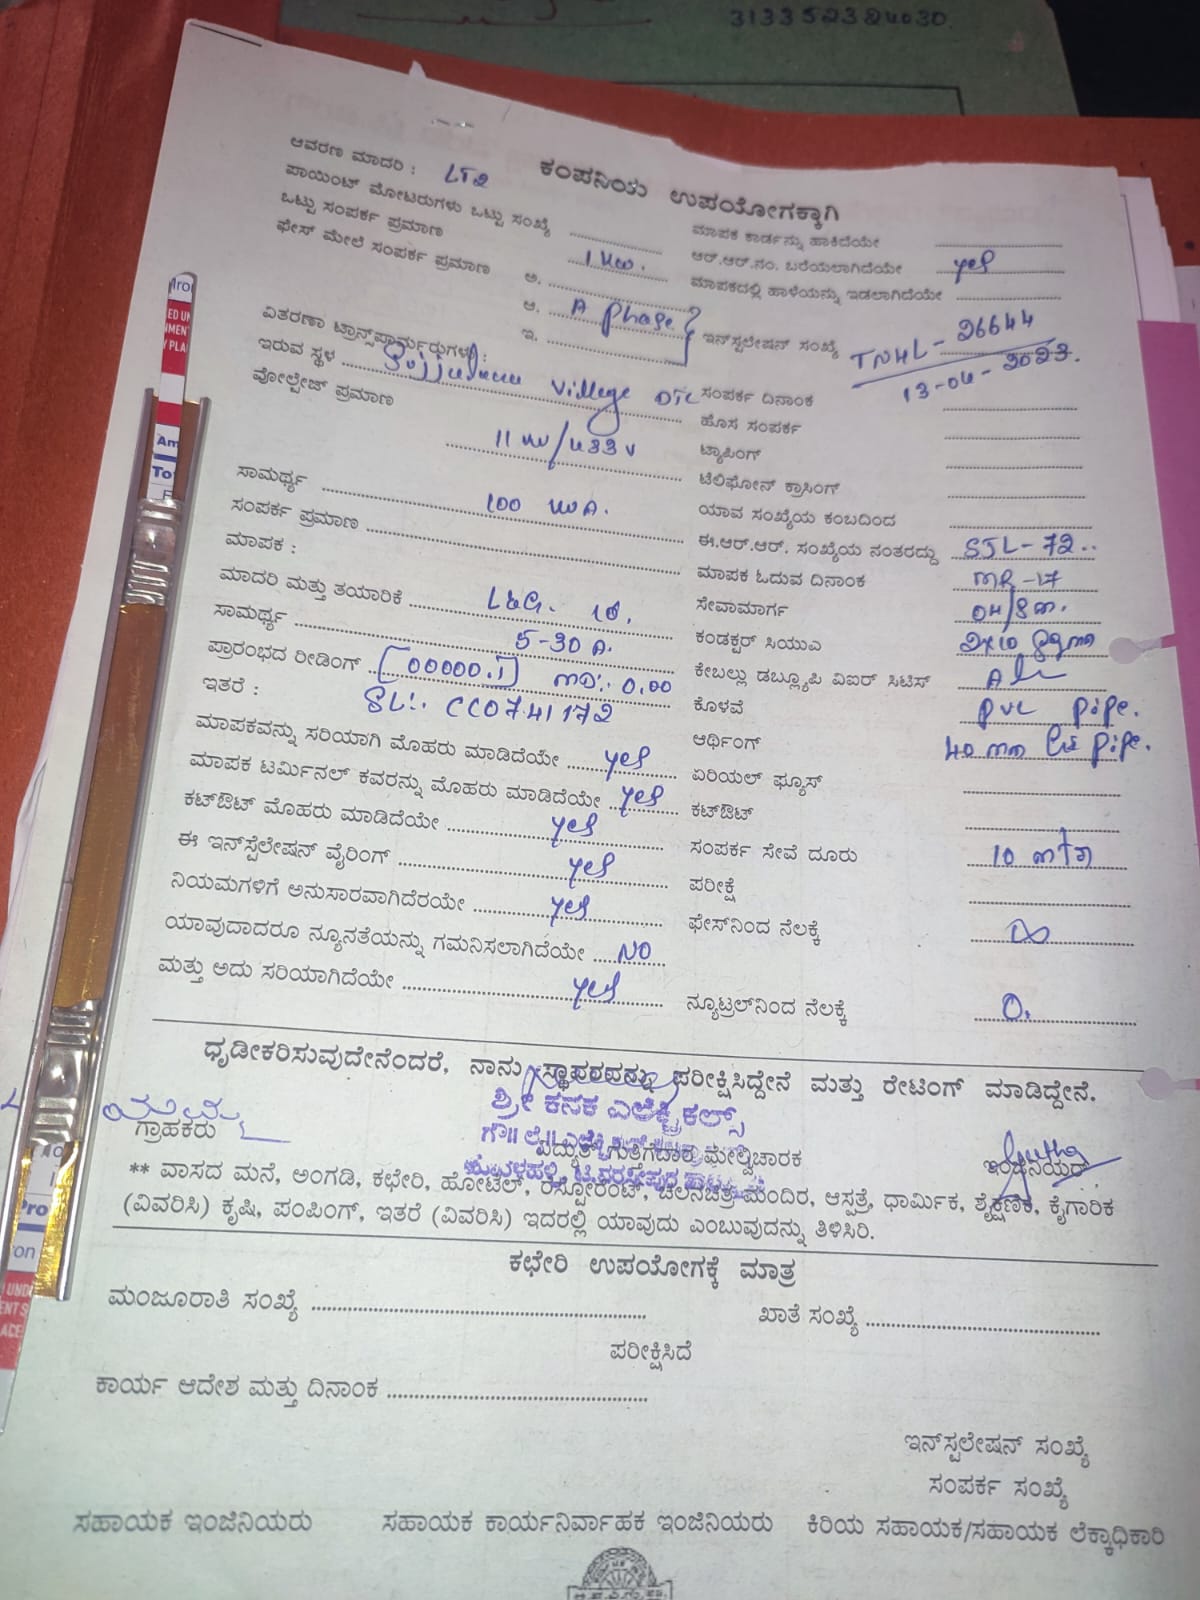 313352324030
ಕಂಪನಿಯ ಉಪಯೋಗಕ್ಕಾಗಿ
ಆವರಣ ಮಾದರಿ : LT2
ಪಾಯಿಂಟ್ ಮೋಟರುಗಳು ಒಟ್ಟು ಸಂಖ್ಯೆ
ಒಟ್ಟು ಸಂಪರ್ಕ ಪ್ರಮಾಣ 1 KW.
ಫೇಸ್ ಮೇಲೆ ಸಂಪರ್ಕ ಪ್ರಮಾಣ ಅ.
ಆ. A phase
ಇ.
ವಿತರಣಾ ಟ್ರಾನ್ಸ್‌ಫಾರ್ಮರ್‍ಗಳು :
ಇರುವ ಸ್ಥಳ Village DTC
ವೋಲ್ಟೇಜ್ ಪ್ರಮಾಣ 11 KV/433 V
ಸಾಮರ್ಥ್ಯ 100 KVA.
ಸಂಪರ್ಕ ಪ್ರಮಾಣ
ಮಾಪಕ :
ಮಾದರಿ ಮತ್ತು ತಯಾರಿಕೆ L&G.
ಸಾಮರ್ಥ್ಯ 5-30 A.
ಪ್ರಾರಂಭದ ರೀಡಿಂಗ್ [00000.1] MD: 0.00
ಇತರೆ : SL: CC0741172
ಮಾಪಕವನ್ನು ಸರಿಯಾಗಿ ಮೊಹರು ಮಾಡಿದೆಯೇ yes
ಮಾಪಕ ಟರ್ಮಿನಲ್ ಕವರನ್ನು ಮೊಹರು ಮಾಡಿದೆಯೇ yes
ಕಟ್‌ಔಟ್ ಮೊಹರು ಮಾಡಿದೆಯೇ yes
ಈ ಇನ್‌ಸ್ಪಲೇಷನ್ ವೈರಿಂಗ್ yes
ನಿಯಮಗಳಿಗೆ ಅನುಸಾರವಾಗಿದೆರಯೇ yes
ಯಾವುದಾದರೂ ನ್ಯೂನತೆಯನ್ನು ಗಮನಿಸಲಾಗಿದೆಯೇ NO
ಮತ್ತು ಅದು ಸರಿಯಾಗಿದೆಯೇ yes
ಮಾಪಕ ಕಾರ್ಡನ್ನು ಹಾಕಿದೆಯೇ
ಆರ್.ಆರ್.ನಂ. ಬರೆಯಲಾಗಿದೆಯೇ yes
ಮಾಪಕದಲ್ಲಿ ಹಾಳೆಯನ್ನು ಇಡಲಾಗಿದೆಯೇ
ಇನ್‌ಸ್ಪಲೇಷನ್ ಸಂಖ್ಯೆ TNHL-26644
13-04-2023.
ಸಂಪರ್ಕ ದಿನಾಂಕ
ಹೊಸ ಸಂಪರ್ಕ
ಟ್ಯಾಪಿಂಗ್
ಟೆಲಿಫೋನ್ ಕ್ರಾಸಿಂಗ್
ಯಾವ ಸಂಖ್ಯೆಯ ಕಂಬದಿಂದ
ಈ.ಆರ್.ಆರ್. ಸಂಖ್ಯೆಯ ನಂತರದ್ದು SJL-72..
ಮಾಪಕ ಓದುವ ದಿನಾಂಕ MR-17
ಸೇವಾಮಾರ್ಗ
ಕಂಡಕ್ಟರ್ ಸಿಯುಎ 2x10 Sqmm
ಕೇಬಲ್ಲು ಡಬ್ಲ್ಯೂಪಿ ವಿಐರ್ ಸಿಟಿಸ್
ಕೊಳವೆ PVC pipe.
ಆರ್ಥಿಂಗ್ 40 mm GI pipe.
ಏರಿಯಲ್ ಫ್ಯೂಸ್
ಕಟ್‌ಔಟ್
ಸಂಪರ್ಕ ಸೇವೆ ದೂರು 10 mtr
ಪರೀಕ್ಷೆ
ಫೇಸ್‌ನಿಂದ ನೆಲಕ್ಕೆ ∞
ನ್ಯೂಟ್ರಲ್‌ನಿಂದ ನೆಲಕ್ಕೆ 0.
ಧೃಡೀಕರಿಸುವುದೇನೆಂದರೆ, ನಾನು ಸ್ಥಾವರವನ್ನು ಪರೀಕ್ಷಿಸಿದ್ದೇನೆ ಮತ್ತು ರೇಟಿಂಗ್ ಮಾಡಿದ್ದೇನೆ.
ಶ್ರೀ ಕನಕ ಎಲೆಕ್ಟ್ರಿಕಲ್ಸ್
ಗ್ರಾಹಕರು ವಿದ್ಯುತ್ ಗುತ್ತಿಗೆದಾರ ಮೇಲ್ವಿಚಾರಕ ಇಂಜಿನಿಯರ್
** ವಾಸದ ಮನೆ, ಅಂಗಡಿ, ಕಛೇರಿ, ಹೋಟೆಲ್, ರೆಸ್ಟೋರೆಂಟ್, ಚಲನಚಿತ್ರ ಮಂದಿರ, ಆಸ್ಪತ್ರೆ, ಧಾರ್ಮಿಕ, ಶೈಕ್ಷಣಿಕ, ಕೈಗಾರಿಕ
(ವಿವರಿಸಿ) ಕೃಷಿ, ಪಂಪಿಂಗ್, ಇತರೆ (ವಿವರಿಸಿ) ಇದರಲ್ಲಿ ಯಾವುದು ಎಂಬುವುದನ್ನು ತಿಳಿಸಿರಿ.
ಕಛೇರಿ ಉಪಯೋಗಕ್ಕೆ ಮಾತ್ರ
ಮಂಜೂರಾತಿ ಸಂಖ್ಯೆ ಖಾತೆ ಸಂಖ್ಯೆ
ಪರೀಕ್ಷಿಸಿದೆ
ಕಾರ್ಯ ಆದೇಶ ಮತ್ತು ದಿನಾಂಕ
ಇನ್‌ಸ್ಪಲೇಷನ್ ಸಂಖ್ಯೆ
ಸಂಪರ್ಕ ಸಂಖ್ಯೆ
ಸಹಾಯಕ ಇಂಜಿನಿಯರು ಸಹಾಯಕ ಕಾರ್ಯನಿರ್ವಾಹಕ ಇಂಜಿನಿಯರು ಕಿರಿಯ ಸಹಾಯಕ/ಸಹಾಯಕ ಲೆಕ್ಕಾಧಿಕಾರಿ